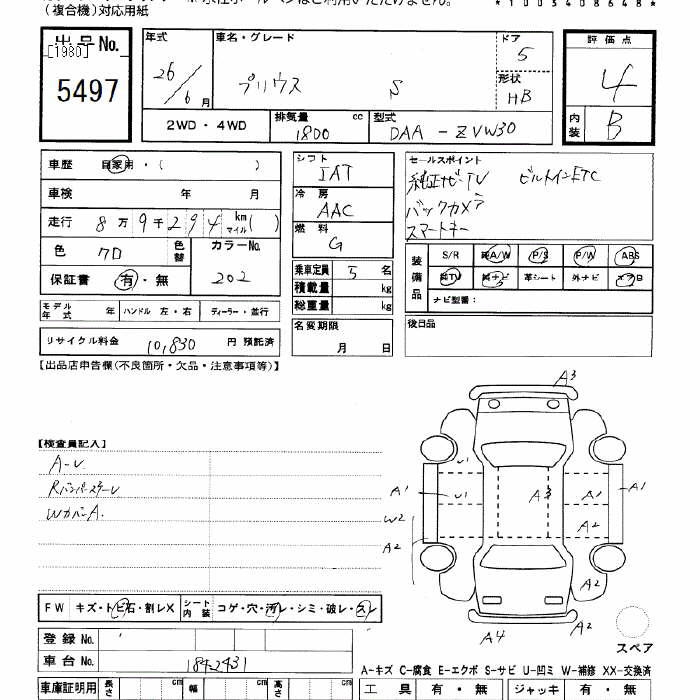 (複合機)対応用紙
*1005408648*
出品No.
[1980]
5497
年式
26/6月
車名・グレード
プリウス S
ドア
5
形状
HB
評価点
4
内装
B
2WD・4WD
排気量 1800 cc
型式 DAA-ZVW30
車歴 自家用・( )
車検 年 月
走行 8万9千294 km マイル( )
色 クロ
色替
カラーNo.
202
保証書 有・無
シフト
IAT
冷房
AAC
燃料
G
乗車定員 5 名
積載量 kg
総重量 kg
名変期限
月 日
セールスポイント
純正ナビTV ビルトインETC
バックカメラ
スマートキー
装備品
S/R 純A/W P/S P/W ABS
純TV 純ナビ 革シート 外ナビ エアB
ナビ型番:
後日品
モデル年式 年 ハンドル 左・右 ディーラー・並行
リサイクル料金 10,830 円 預託済
【出品店申告欄(不良箇所・欠品・注意事項等)】
【検査員記入】
A-U
RバンパースチールU
WカバーA.
A3
U1
A1
U1
A3
A1
A1
W2
A2
A2
A2
A4
A2
スペア
FW キズ・トビ石・割レX
シート内装 コゲ・穴・汚レ・シミ・破レ・スレ
登録No.
車台No. 1842431
車庫証明用 長さ cm 幅 cm 高さ cm
A-キズ C-腐食 E-エクボ S-サビ U-凹ミ W-補修 XX-交換済
工具 有・無 ジャッキ 有・無